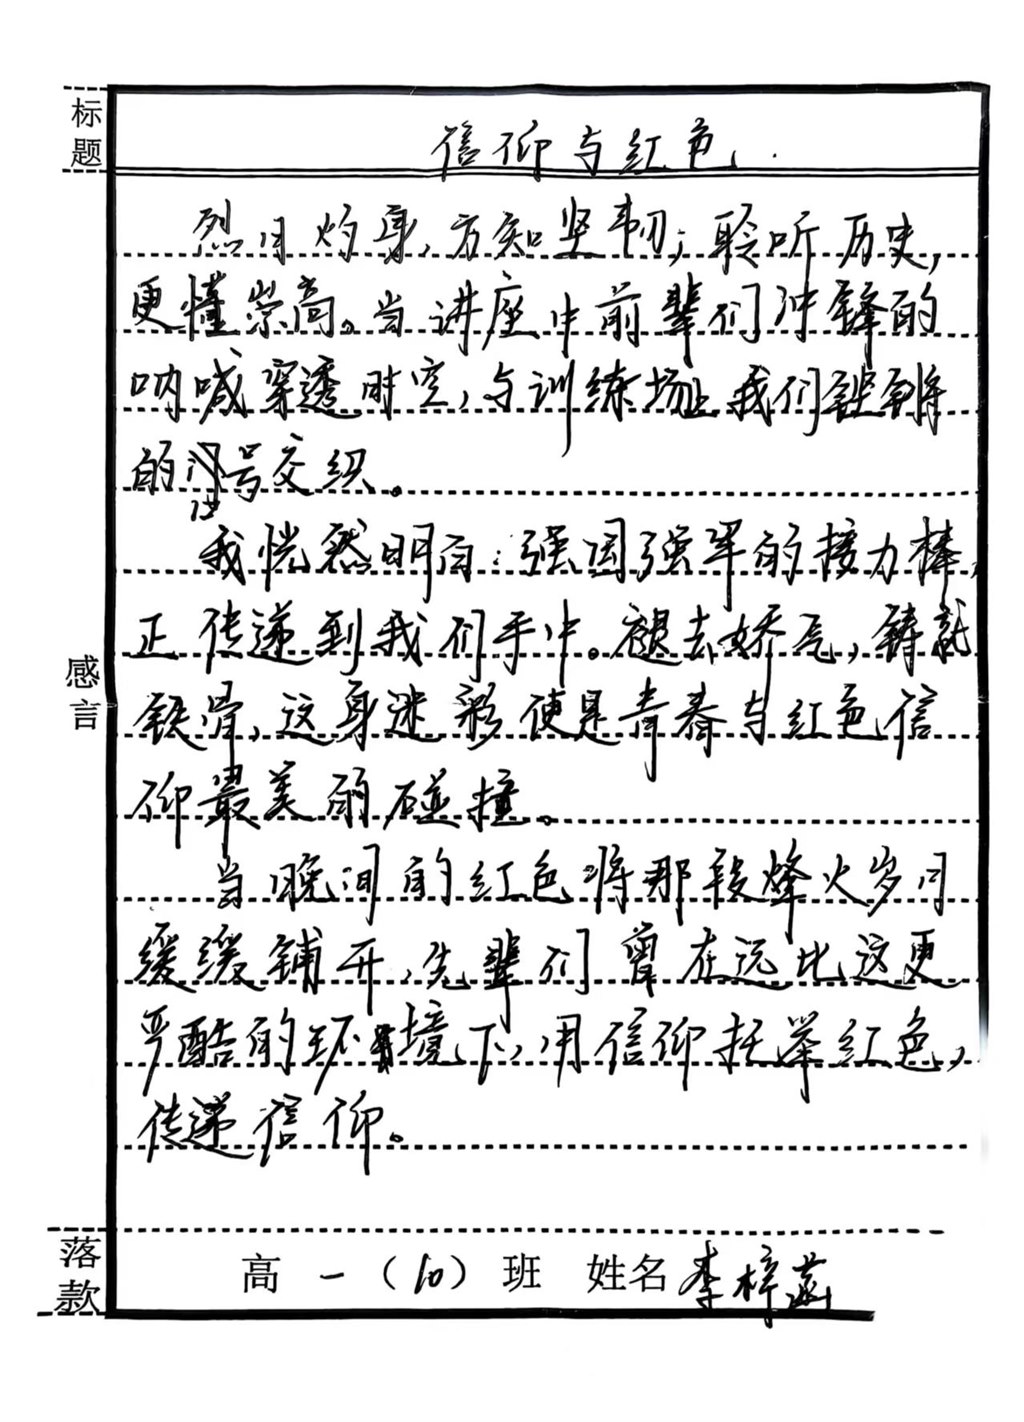 标题
信仰与红色.
烈日灼身,方知坚韧;聆听历史,
更懂崇高。当讲座中前辈们冲锋的
呐喊穿透时空,与训练场上我们铿锵
的口号交织。
我恍然明白:强国强军的接力棒,
正传递到我们手中。褪去娇气,铸就
铁骨,这身迷彩便是青春与红色信
仰最美的碰撞。
感言
当晚间的红色将那段烽火岁月
缓缓铺开,先辈们曾在远比这更
严酷的环境下,用信仰托举红色,
传递信仰。
落款
高一(10)班 姓名李梓菡